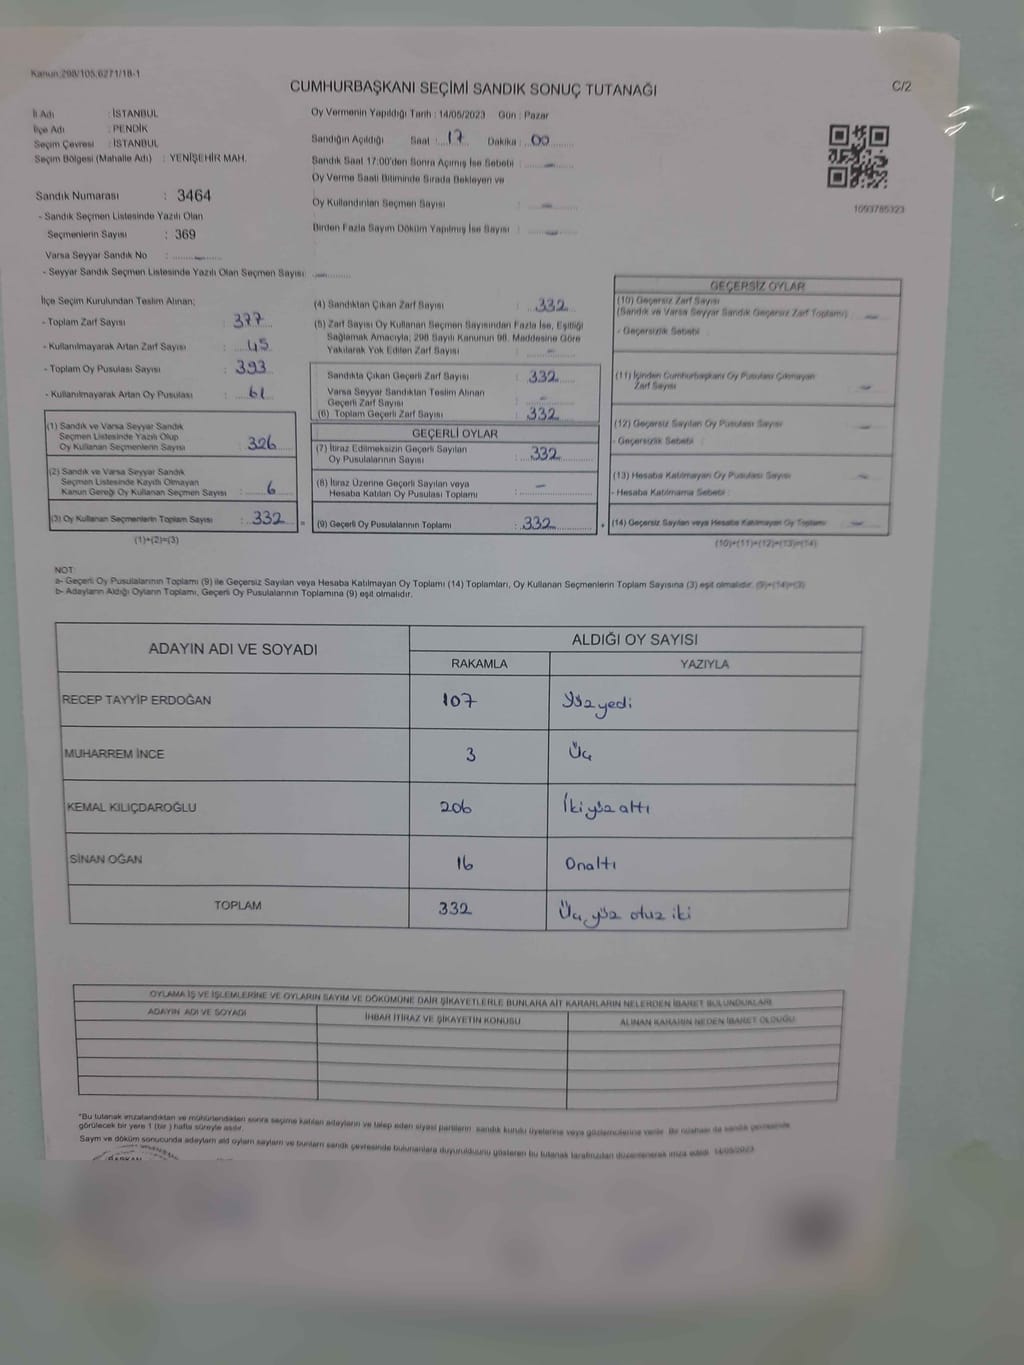 Kanun:298/105,6271/18-1
CUMHURBAŞKANI SEÇİMİ SANDIK SONUÇ TUTANAĞI
C/2
İl Adı : İSTANBUL
İlçe Adı : PENDİK
Seçim Çevresi : İSTANBUL
Seçim Bölgesi (Mahalle Adı) : YENİŞEHİR MAH.
Oy Vermenin Yapıldığı Tarih : 14/05/2023 Gün : Pazar
Sandığın Açıldığı Saat : 17 Dakika : 00
Sandık Saat 17:00'den Sonra Açımış İse Sebebi : -
Oy Verme Saati Bitiminde Sırada Bekleyen ve
Oy Kullandırılan Seçmen Sayısı : -
Birden Fazla Sayım Döküm Yapılmış İse Sayısı : -
1093785323
Sandık Numarası : 3464
- Sandık Seçmen Listesinde Yazılı Olan
Seçmenlerin Sayısı : 369
Varsa Seyyar Sandık No : -
- Seyyar Sandık Seçmen Listesinde Yazılı Olan Seçmen Sayısı: -
İlçe Seçim Kurulundan Teslim Alınan;
- Toplam Zarf Sayısı : 377
- Kullanılmayarak Artan Zarf Sayısı : 45
- Toplam Oy Pusulası Sayısı : 393
- Kullanılmayarak Artan Oy Pusulası : 61
(1) Sandık ve Varsa Seyyar Sandık
Seçmen Listesinde Yazılı Olup
Oy Kullanan Seçmenlerin Sayısı : 326
(2) Sandık ve Varsa Seyyar Sandık
Seçmen Listesinde Kayıtlı Olmayan
Kanun Gereği Oy Kullanan Seçmen Sayısı : 6
(3) Oy Kullanan Seçmenlerin Toplam Sayısı : 332
(1)+(2)=(3)
(4) Sandıktan Çıkan Zarf Sayısı : 332
(5) Zarf Sayısı Oy Kullanan Seçmen Sayısından Fazla İse, Eşitliği
Sağlamak Amacıyla; 298 Sayılı Kanunun 98. Maddesine Göre
Yakılarak Yok Edilen Zarf Sayısı : -
Sandıkta Çıkan Geçerli Zarf Sayısı : 332
Varsa Seyyar Sandıktan Teslim Alınan
Geçerli Zarf Sayısı : -
(6) Toplam Geçerli Zarf Sayısı : 332
GEÇERLİ OYLAR
(7) İtiraz Edilmeksizin Geçerli Sayılan
Oy Pusulalarının Sayısı : 332
(8) İtiraz Üzerine Geçerli Sayılan veya
Hesaba Katılan Oy Pusulası Toplamı : -
= (9) Geçerli Oy Pusulalarının Toplamı : 332 +
GEÇERSİZ OYLAR
(10) Geçersiz Zarf Sayısı
(Sandık ve Varsa Seyyar Sandık Geçersiz Zarf Toplamı) : -
- Geçersizlik Sebebi :
(11) İçinden Cumhurbaşkanı Oy Pusulası Çıkmayan
Zarf Sayısı : -
(12) Geçersiz Sayılan Oy Pusulası Sayısı : -
- Geçersizlik Sebebi :
(13) Hesaba Katılmayan Oy Pusulası Sayısı : -
- Hesaba Katılmama Sebebi :
(14) Geçersiz Sayılan veya Hesaba Katılmayan Oy Toplamı : -
(10)+(11)+(12)+(13)=(14)
NOT:
a- Geçerli Oy Pusulalarının Toplamı (9) ile Geçersiz Sayılan veya Hesaba Katılmayan Oy Toplamı (14) Toplamları, Oy Kullanan Seçmenlerin Toplam Sayısına (3) eşit olmalıdır. (9)+(14)=(3)
b- Adayların Aldığı Oyların Toplamı, Geçerli Oy Pusulalarının Toplamına (9) eşit olmalıdır.
ADAYIN ADI VE SOYADI ALDIĞI OY SAYISI
RAKAMLA YAZIYLA
RECEP TAYYİP ERDOĞAN 107 Yüzyedi
MUHARREM İNCE 3 Üç
KEMAL KILIÇDAROĞLU 206 İkiyüzaltı
SİNAN OĞAN 16 Onaltı
TOPLAM 332 Üçyüz otuz iki
OYLAMA İŞ VE İŞLEMLERİNE VE OYLARIN SAYIM VE DÖKÜMÜNE DAİR ŞİKAYETLERLE BUNLARA AİT KARARLARIN NELERDEN İBARET BULUNDUKLARI
ADAYIN ADI VE SOYADI İHBAR İTİRAZ VE ŞİKAYETİN KONUSU ALINAN KARARIN NEDEN İBARET OLDUĞU
"Bu tutanak imzalandıktan ve mühürlendikten sonra seçime katılan adayların ve talep eden siyasi partilerin sandık kurulu üyelerine veya gözlemcilerine verilir. Bir nüshası da sandık çevresinde
görülecek bir yere 1 (bir ) hafta süreyle asılır.
Sayım ve döküm sonucunda adayların ald oyların sayların ve bunların sandık çevresinde bulunanlara duyurulduunu gösteren bu tutanak tarafmzdan düzenlenerek imza edildi. 14/05/2023
BAŞKAN